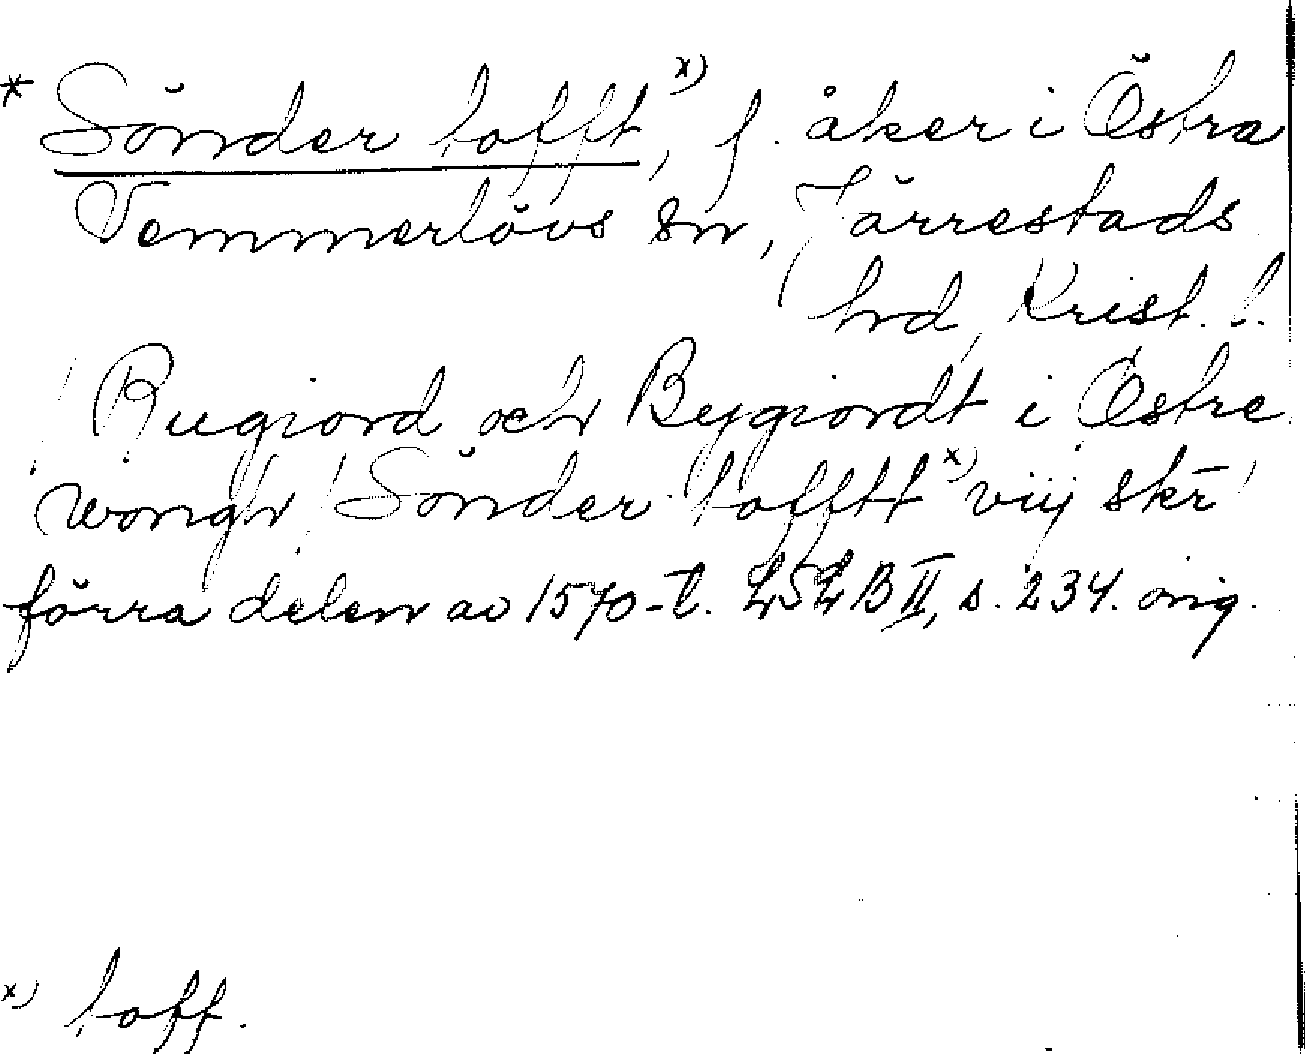 * Sönder tofft,x) f. åker i Östra
Vemmerlövs sn, Järrestads
hrd, Krist. l.
! Rugiord och Bygiordt i Östre
wongh / Sönder tofftt x) viij skr̄ !
förra delen av 1570-t. LSLB II, s. 234. orig.
x) toff.